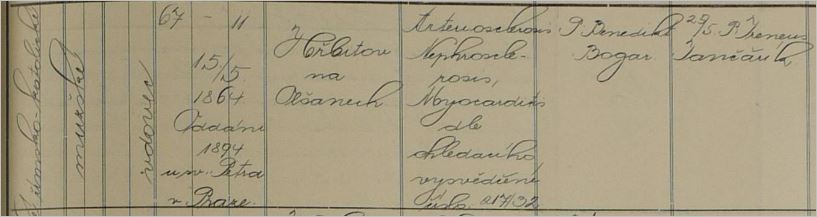 římsko-katolické
mužské
vdovec
67 - 11
15/5.
1864
Oddáni
1894
u sv. Petra
v Praze.
Hřbitov
na
Olšanech
Arteriosclerosis
Nephroscle-
rosis,
Myocarditis
dle
ohledacího
vysvědčení
čísl. 217/32
P. Benedikt
Bogar
29/5. P. Ireneus
Jančařík